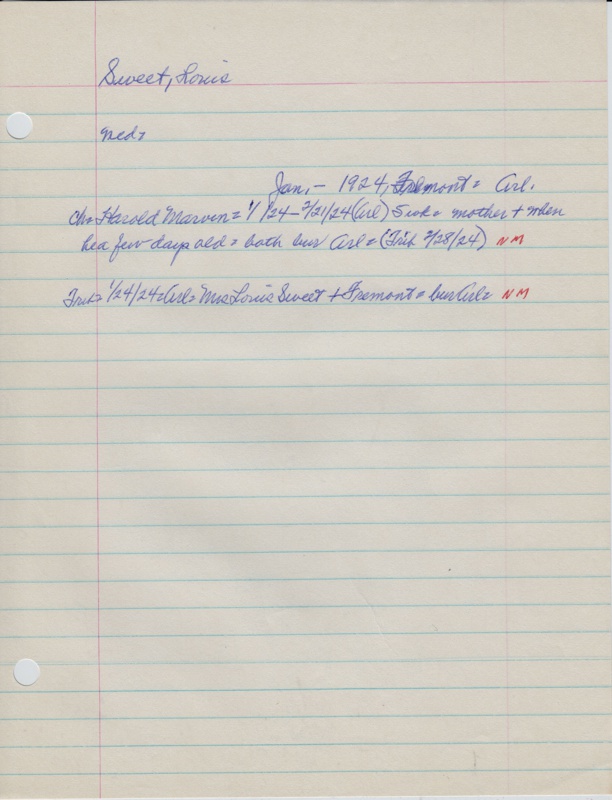 Sweet, Louis
Med=
Jan. - 1924, Fremont = Arl.
Ch= Harold Marven = 1/ /24 - 2/21/24 (Arl) 5 wk = mother + when
he a few days old = both bur Arl = (Trib 2/28/24) NM
Trib= 1/24/24= Arl= Mrs Louis Sweet + Fremont = bur Arl= NM